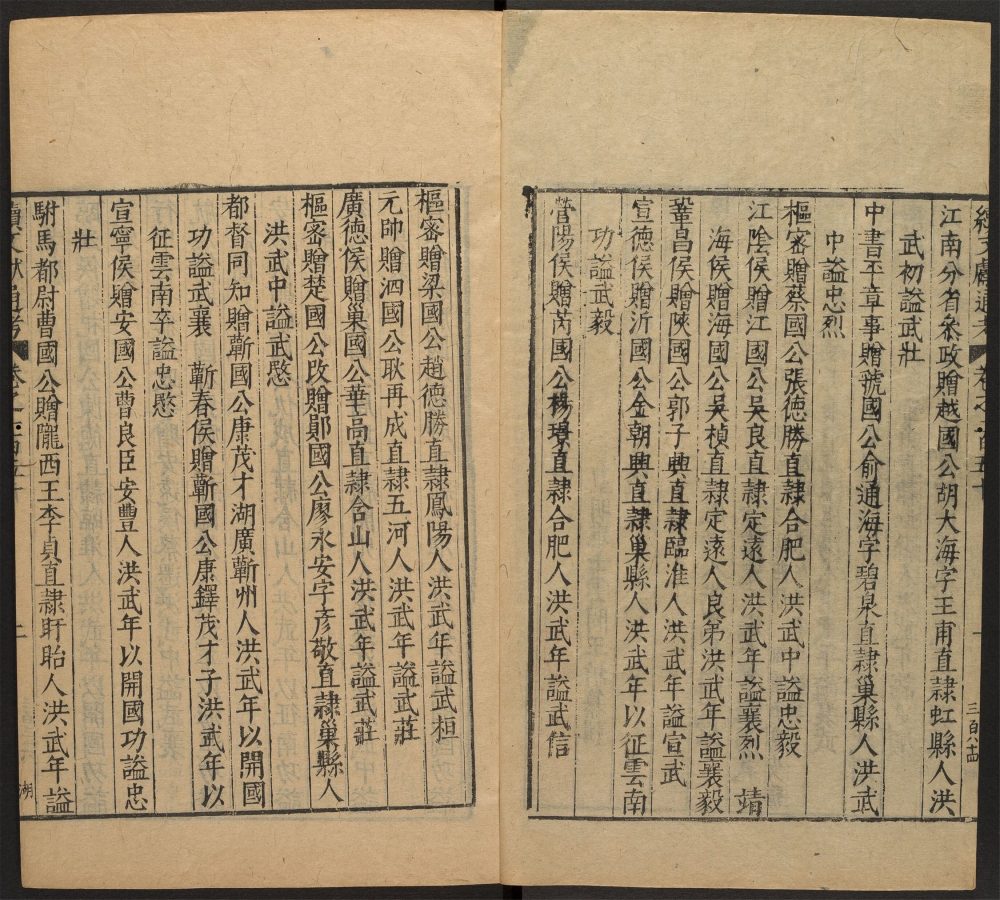 續文獻通考 卷之一百五十
三百六十四
江南分省叅政贈越國公胡大海字王甫直隸虹縣人洪
武初謚武壯
中書平章事贈號國公俞通海字碧泉直隸巢縣人洪武
中謚忠烈
樞密贈蔡國公張德勝直隸合肥人洪武中謚忠毅
江陰侯贈江國公吳良直隸定遠人洪武年謚襄烈 靖
海侯贈海國公吳楨直隸定遠人良弟洪武年謚襄毅
鞏昌侯贈陝國公郭子興直隸臨淮人洪武年謚宣武
宣德侯贈沂國公金朝興直隸巢縣人洪武年以征雲南
功謚武毅
營陽侯贈芮國公楊璟直隸合肥人洪武年謚武信
樞密贈梁國公趙德勝直隸鳳陽人洪武年謚武桓
元帥贈泗國公耿再成直隸五河人洪武年謚武莊
廣德侯贈巢國公華高直隸含山人洪武年謚武莊
樞密贈楚國公改贈鄖國公廖永安字彥敬直隸巢縣人
洪武中謚武愍
都督同知贈蘄國公康茂才湖廣蘄州人洪武年以開國
功謚武襄 蘄春侯贈蘄國公康鐸茂才子洪武年以
征雲南卒謚忠愍
宣寧侯贈安國公曹良臣安豐人洪武年以開國功謚忠
壯
駙馬都尉曹國公贈隴西王李貞直隸盱眙人洪武年謚
續文獻通考 卷之一百五十